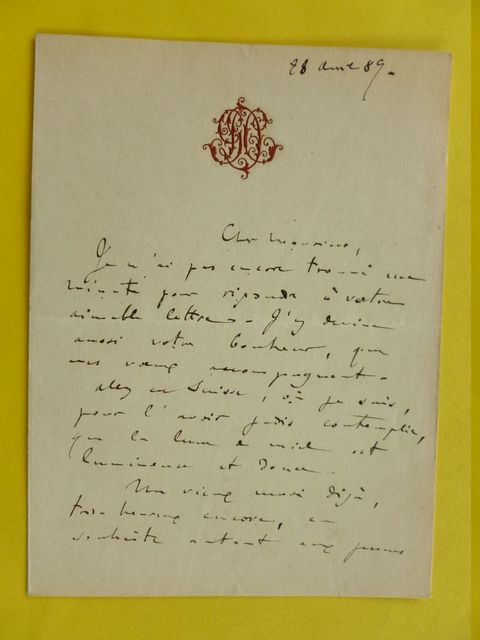 28 avril 89.
Cher Monsieur,
Je n'ai pas encore trouvé une
minute pour répondre à votre
aimable lettre. J'y devine
aussi votre bonheur, que
mes vœux accompagnent.
Allez en Suisse, où je sais,
pour l'avoir jadis contemplée,
que la lune de miel est
lumineuse et douce.
Un vieux mari déjà,
très heureux encore, en
souhaite autant aux jeunes